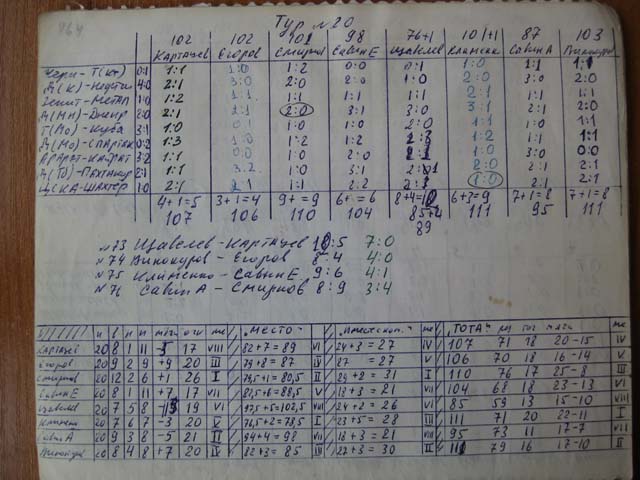 464
Тур № 20
102 102 101 98 76+1 101/+1 87 103
Картацев Егоров Смирнов Савин Е Щавелев Клименк Савин А Винокуров
Черн-Т(Кт) 0:1 1:1 1:0 1:2 0:0 0:1 1:0 1:1 1:1
Д(К)-Нефтч 4:0 2:1 3:0 2:0 2:0 1:0 2:0 3:0 2:0
Зенит-Метал 1:0 1:2 1:1 1:1 1:1 1:1 2:1 1:1 1:1
Д(Мн)-Днепр 2:0 2:1 2:1 2:0 3:1 3:0 3:1 2:1 2:0
Т(Мо)-Куба 3:1 1:0 0:1 1:0 1:0 2:0 1:1 1:0 1:1
Д(Мо)-Спартак 0:2 1:3 1:0 1:2 1:2 2:3 1:2 1:1 1:1
Арарат-Кайрат 3:2 1:1 0:0 1:0 2:0 1:0 3:0 0:0
Д(Тб)-Пахтакор 2:1 1:1 3:2 1:0 3:1 2:0 2:1 2:1
ЦСКА-Шахтер 1:0 2:1 2:1 1:1 2:2 2:3 1:0 2:1 2:1
4+1=5 3+1=4 9+=9 6+=6 8+4=10 6+3=9 7+1=8 7+1=8
107 106 110 104 85+4 111 95 111
89
№73 Щавелев-Картацев 10:5 7:0
№74 Винокуров-Егоров 8-4 4:0
№75 Клименко-Савин Е 9:6 4:1
№76 Савин А-Смирнов 8:9 3:4
и в н п мячи очи ме "Место" ме "Место кол." ме "Тота" раз тог мячи
Картацев 20 8 1 11 17 VIII 82+7=89 VI 24+3=27 IV 107 71 18 20-15 IV
Егоров 20 9 2 9 +9 20 III 79+8=87 IV 27 =27 V 106 70 18 16-14 V
Смирнов 20 12 2 6 +1 26 I 79,5+1=80,5 II 29+2=31 I 110 76 17 25-8 III
Савин Е 20 8 1 11 +7 17 VII 82,5+6=88,5 V 18+3=21 VII 104 68 18 23-13 VI
Щавелев 20 7 5 8 19 VI 97,5+5=102,5 VIII 24+2=26 VI 85 59 13 15-10 VIII
Клименк 20 7 6 7 -3 20 V 76,5+2=78,5 I 23+5=28 III 111 71 20 22-11 I
Савин А 20 9 3 8 -5 21 II 94+4=98 VII 18+3=21 VIII 95 73 11 17-7 VII
Винокуров 20 8 4 8 +7 20 IV 82+3=85 III 27+3=30 II 111 79 16 17-10 II